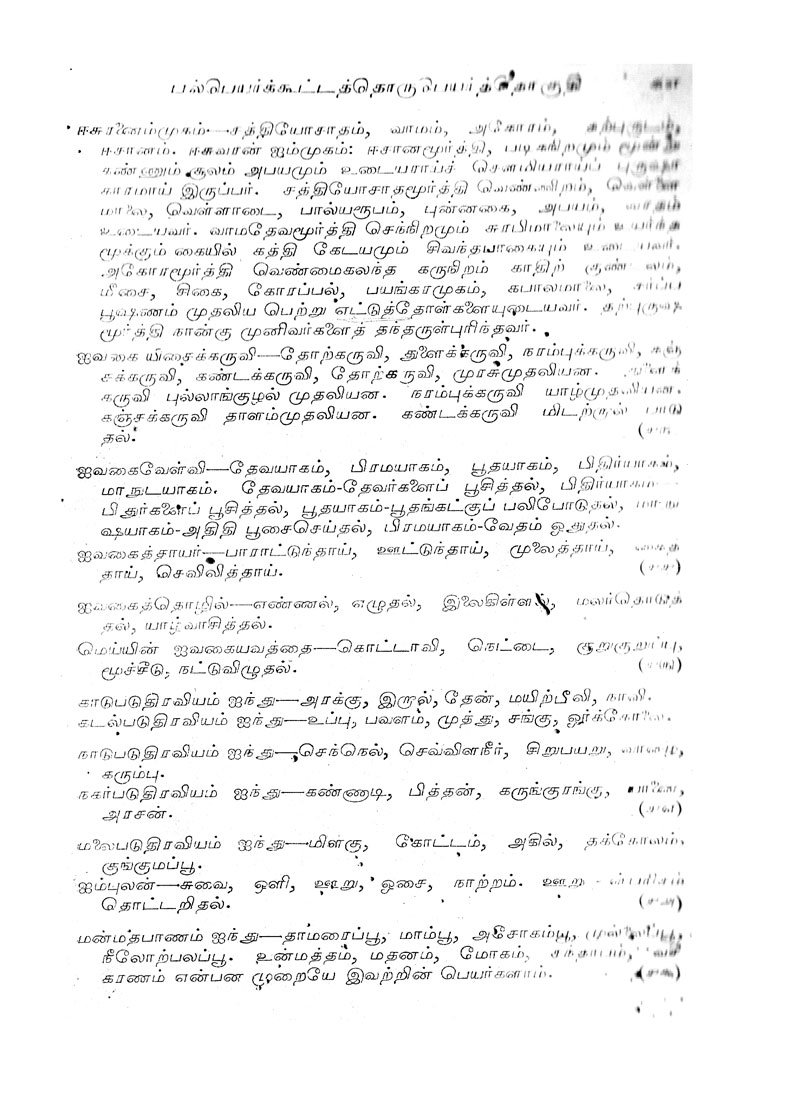 பல்பெயர்க்கூட்டத்தொருபெயர்த்தொகுதி
ஈசுரனைம்முகம்—சத்தியோசாதம், வாமம், அகோரம்,
ஈசானம். ஈசுவரன் ஐம்முகம்: ஈசானமூர்த்தி, படிகநிறமும் மூன்று
கண்ணும் சூலம் அபயமும் உடையராய்ச் சௌமியராய்ப்
காரமாய் இருப்பர். சத்தியோசாதமூர்த்தி வெண்ணிறம்,
மாலை, வெள்ளாடை, பால்யரூபம், புன்னகை, அபயம், வரதம்
உடையவர். வாமதேவமூர்த்தி செந்நிறமும் சுரபிமாலையும் உயர்ந்த
மூக்கும் கையில் கத்தி கேடயமும் சிவந்தபாகையும் உடையவர்.
அகோரமூர்த்தி வெண்மைகலந்த கருநிறம் காதிற்
மீசை, சிகை, கோரப்பல், பயங்கரமுகம், கபாலமாலை, சர்ப்ப
பூஷணம் முதலிய பெற்று எட்டுத்தோள்களையுடையவர். தற்புருஷ
மூர்த்தி நான்கு முனிவர்களைத் தந்தருள்புரிந்தவர்.
ஐவகை யிசைக்கருவி—தோற்கருவி, துளைக்கருவி, நரம்புக்கருவி, கஞ்
சக்கருவி, கண்டக்கருவி, தோற்கருவி, முரசுமுதலியன. துளைக்
கருவி புல்லாங்குழல் முதலியன. நரம்புக்கருவி யாழ்முதலியன.
கஞ்சக்கருவி தாளம்முதலியன. கண்டக்கருவி மிடற்றால் பாடு
தல்.
ஐவகைவேள்வி—தேவயாகம், பிரமயாகம், பூதயாகம், பிதிர்யாகம்,
மாநுடயாகம். தேவயாகம்-தேவர்களைப் பூசித்தல், பிதிர்யாகம்-
பிதுர்களைப் பூசித்தல், பூதயாகம்-பூதங்கட்குப் பலிபோடுதல், மாநு
ஷயாகம்-அதிதி பூசைசெய்தல், பிரமயாகம்-வேதம் ஓதுதல்.
ஐவகைத்தாயர்—பாராட்டுந்தாய், ஊட்டுந்தாய், முலைத்தாய், கைத்
தாய், செவிலித்தாய்.
ஐவகைத்தொழில்—எண்ணல், எழுதல், இலைகிள்ளல், மலர்தொடுத்
தல், யாழ்வாசித்தல்.
மெய்யின் ஐவகையவத்தை—கொட்டாவி, நெட்டை, குறுகுறுப்பு,
மூச்சீடு, நட்டுவிழுதல்.
காடுபடுதிரவியம் ஐந்து—அரக்கு, இறால், தேன், மயிற்பீலி, நாவி.
கடல்படுதிரவியம் ஐந்து—உப்பு, பவளம், முத்து, சங்கு, ஓர்க்கோலை.
நாடுபடுதிரவியம் ஐந்து—செந்நெல், செவ்விளநீர், சிறுபயறு, வாழை,
கரும்பு.
நகர்படுதிரவியம் ஐந்து—கண்ணாடி, பித்தன், கருங்குரங்கு, யானை,
அரசன்.
மலைபடுதிரவியம் ஐந்து—மிளகு, கோட்டம், அகில், தக்கோலம்,
குங்குமப்பூ.
ஐம்புலன்—சுவை, ஒளி, ஊறு, ஓசை, நாற்றம். ஊறு - ஸ்பரிசம்
தொட்டறிதல்.
மன்மதபாணம் ஐந்து—தாமரைப்பூ, மாம்பூ, அசோகம்பூ, முல்லைப்பூ,
நீலோற்பலப்பூ. உன்மத்தம், மதனம், மோகம், சந்தாபம், வசீ
கரணம் என்பன முறையே இவற்றின் பெயர்களாம்.